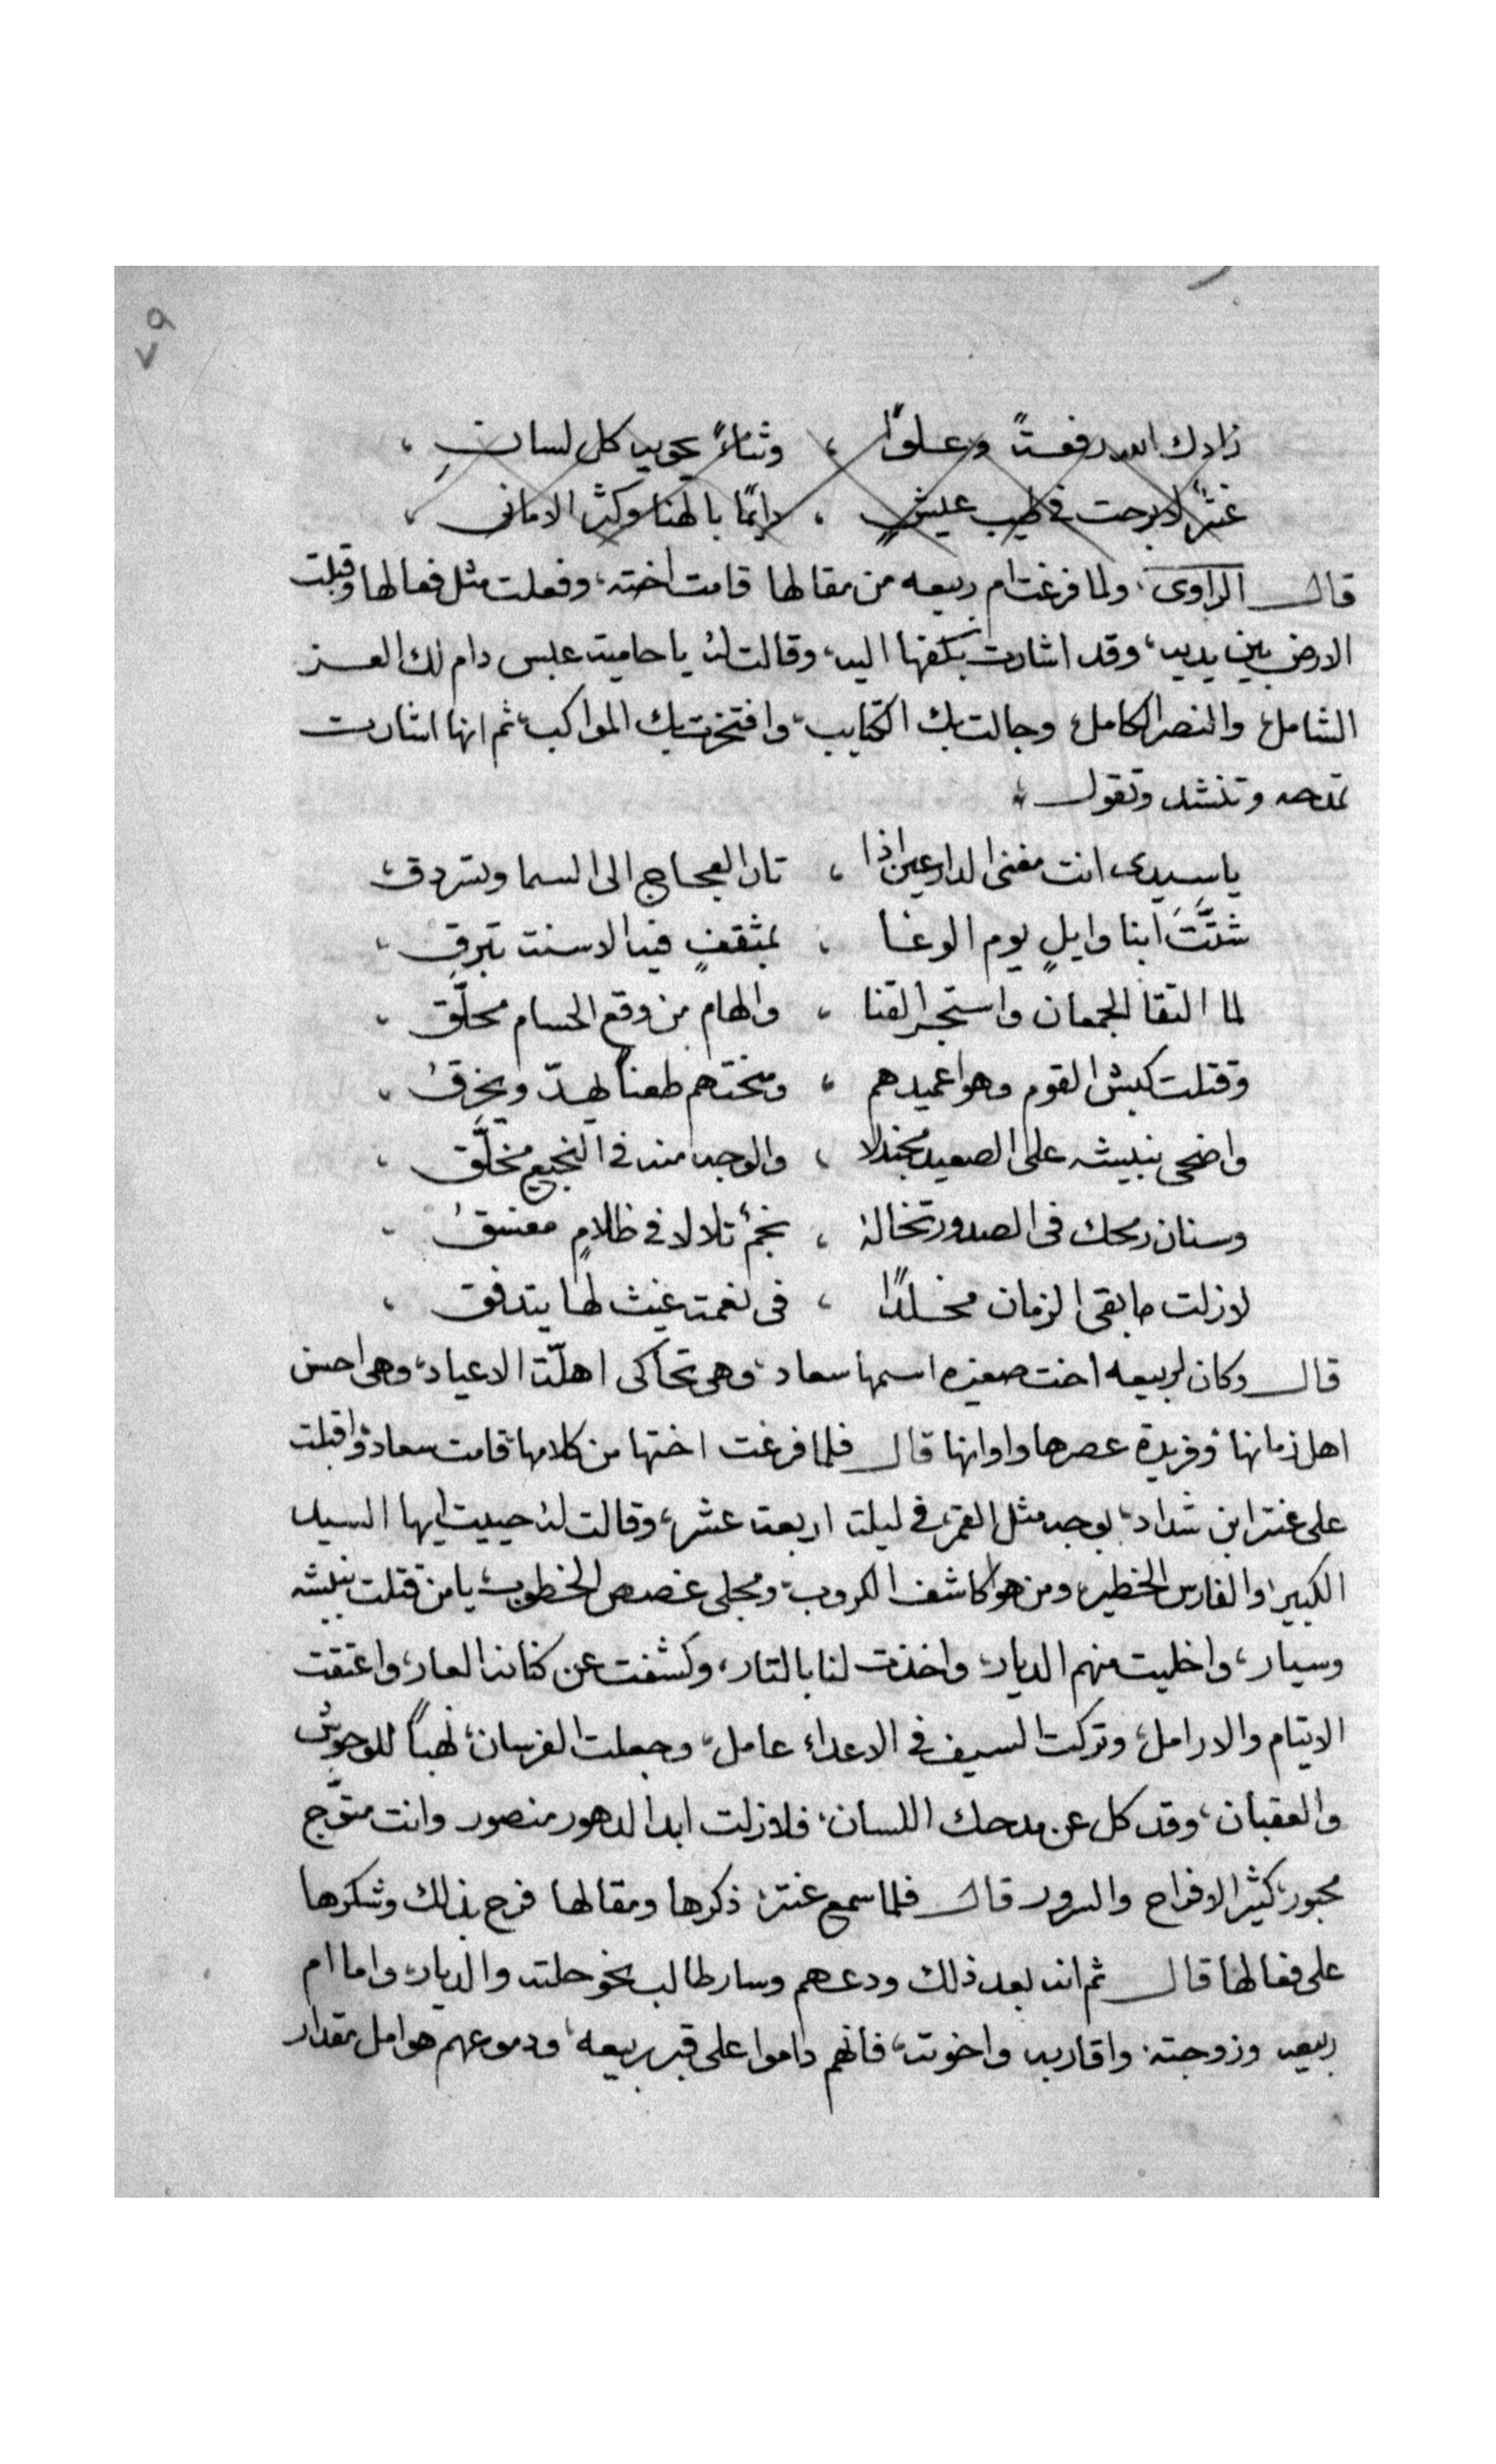 ٧٩
زادك الله رفعةً وعلوًا ، وثناءً يحويه كل لسانِ ،
عنترٌ لا برحت في طيب عيشٍ ، دايمًا بالهنا وكثر الاماني ،
قال الراوى ، ولما فرغت ام ربيعه من مقالها قامت اخته ، وفعلت مثل فعالها وقبلت
الارض بين يديه ، وقد اشارت بكفها اليه ، وقالت له يا حامية عبس دام لك العز
الشامل ، والنصر الكامل ، وجالت بك الكتايب ، وافتخرت بك المواكب ، ثم انها اشارت
تمدحه وتنشد وتقول ،
يا سيدى انت مفنى الدارعين اذا ، ثار العجاج الى السما ويسردق ،
شتَّتَ ابنا وايلٍ يوم الوغا ، بمثقفٍ فيه الاسنة تبرق ،
لما التقا الجمعان واستجر القنا ، والهام من وقع الحسام محلّق ،
وقتلت كبش القوم وهو اعميدهم ، ومنحتهم طعناً يهدّ ويخرقُ ،
واضحى نبيشه على الصعيد مجندلا ، والوجه منه في النجيع مخلّق ،
وسنان رمحك في الصدور تخاله ، نجمٌ تلالا في ظلامٍ مغسقُ ،
لا زلت ما بقى الزمان مخلدًا ، في نعمة غيث لها يتدفق ،
قال وكان لربيعه اخت صغيره اسمها سعاد ، وهى تحاكى اهلّة الاعياد ، وهى احسن
اهل زمانها ، وفريدة عصرها واوانها قال فلما فرغت اختها من كلامها قامت سعاد ، واقبلت
على عنتر ابن شداد ، بوجه مثل القمر ، في ليلة اربعة عشر ، وقالت له حييت ايها السيد
الكبير ، والفارس الخطير ، ومن هو كاشف الكروب ، ومجلى غصص الخطوب ، يا من قتلت نبيشه
وسيار ، واخليت منهم الديار ، واخذت لنا بالتار ، وكشفت عن كنانه العار ، واعتقت
الايتام والارامل ، وتركت السيف في الاعداء عامل ، وجعلت الفرسان ، نهباً للوحوش
والعقبان ، وقد كل عن مدحك اللسان ، فلا زلت ابدا لدهور منصور وانت متوّج
محبور ، كثير الافراح والسرور قال فلما سمع عنتر ذكرها ومقالها فرح بذلك وشكرها
على فعالها قال ثم انه بعد ذلك ودعهم وسار طالب نحو حلته والديار ، واما ام
ربيعه وزوجته واقاربه واخوته ، فانهم داموا على قبر ربيعه ، ودموعهم هوامل مقدار